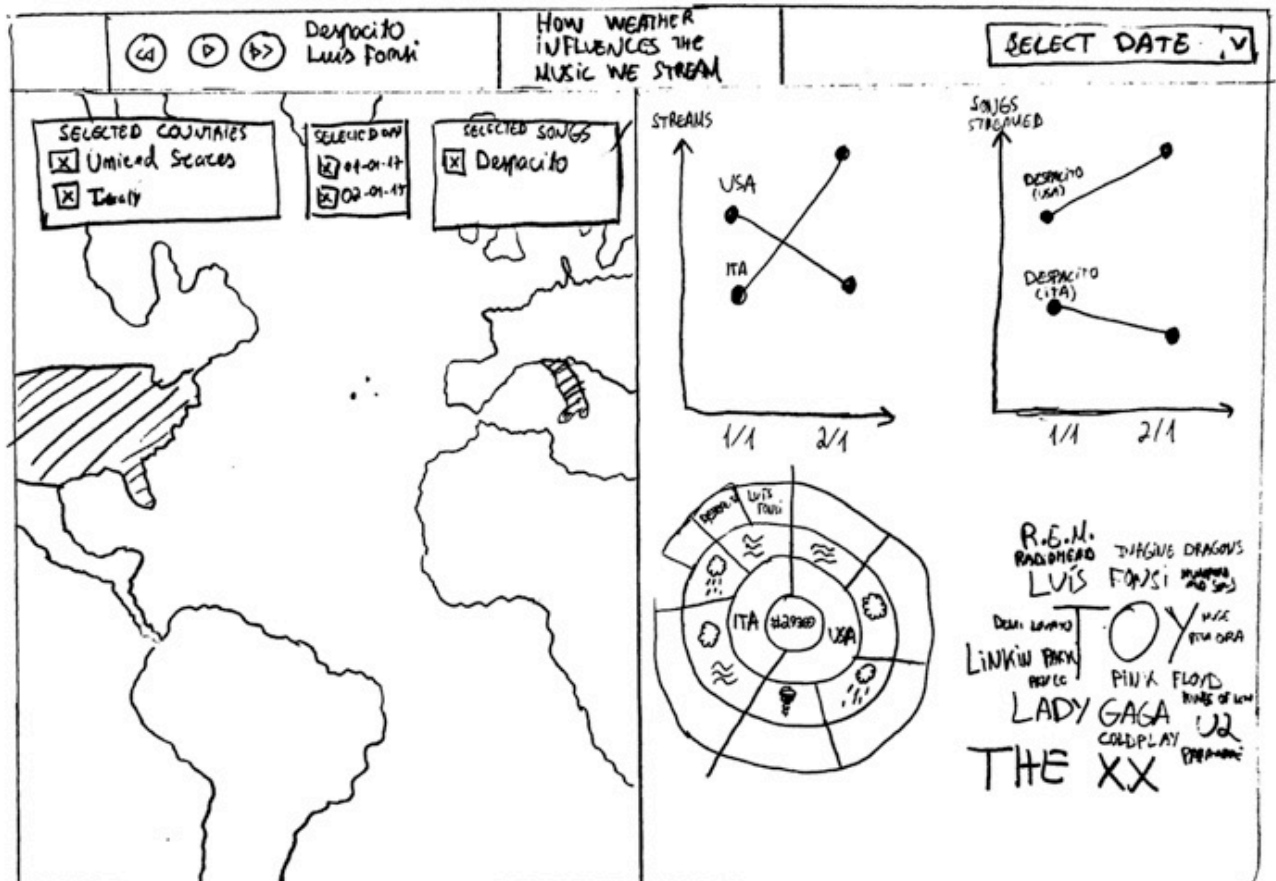 Despacito
Luis Fonsi
HOW WEATHER
INFLUENCES THE
MUSIC WE STREAM
SELECT DATE
SELECTED COUNTRIES
X United States
X Italy
SELECTED DAY
X 01-01-17
X
SELECTED SONGS
X Despacito
STREAMS
USA
ITA
1/1 2/1
SONGS
STREAMED
DESPACITO
(USA)
DESPACITO
(ITA)
1/1 2/1
LUIS
FONSI
ITA
USA
R.E.M.
RADIOHEAD
IMAGINE DRAGONS
LUÍS FONSI
DEMI LOVATO
TOY
LINKIN PARK
PINK FLOYD
LADY GAGA
U2
COLDPLAY
PARAMORE
THE XX